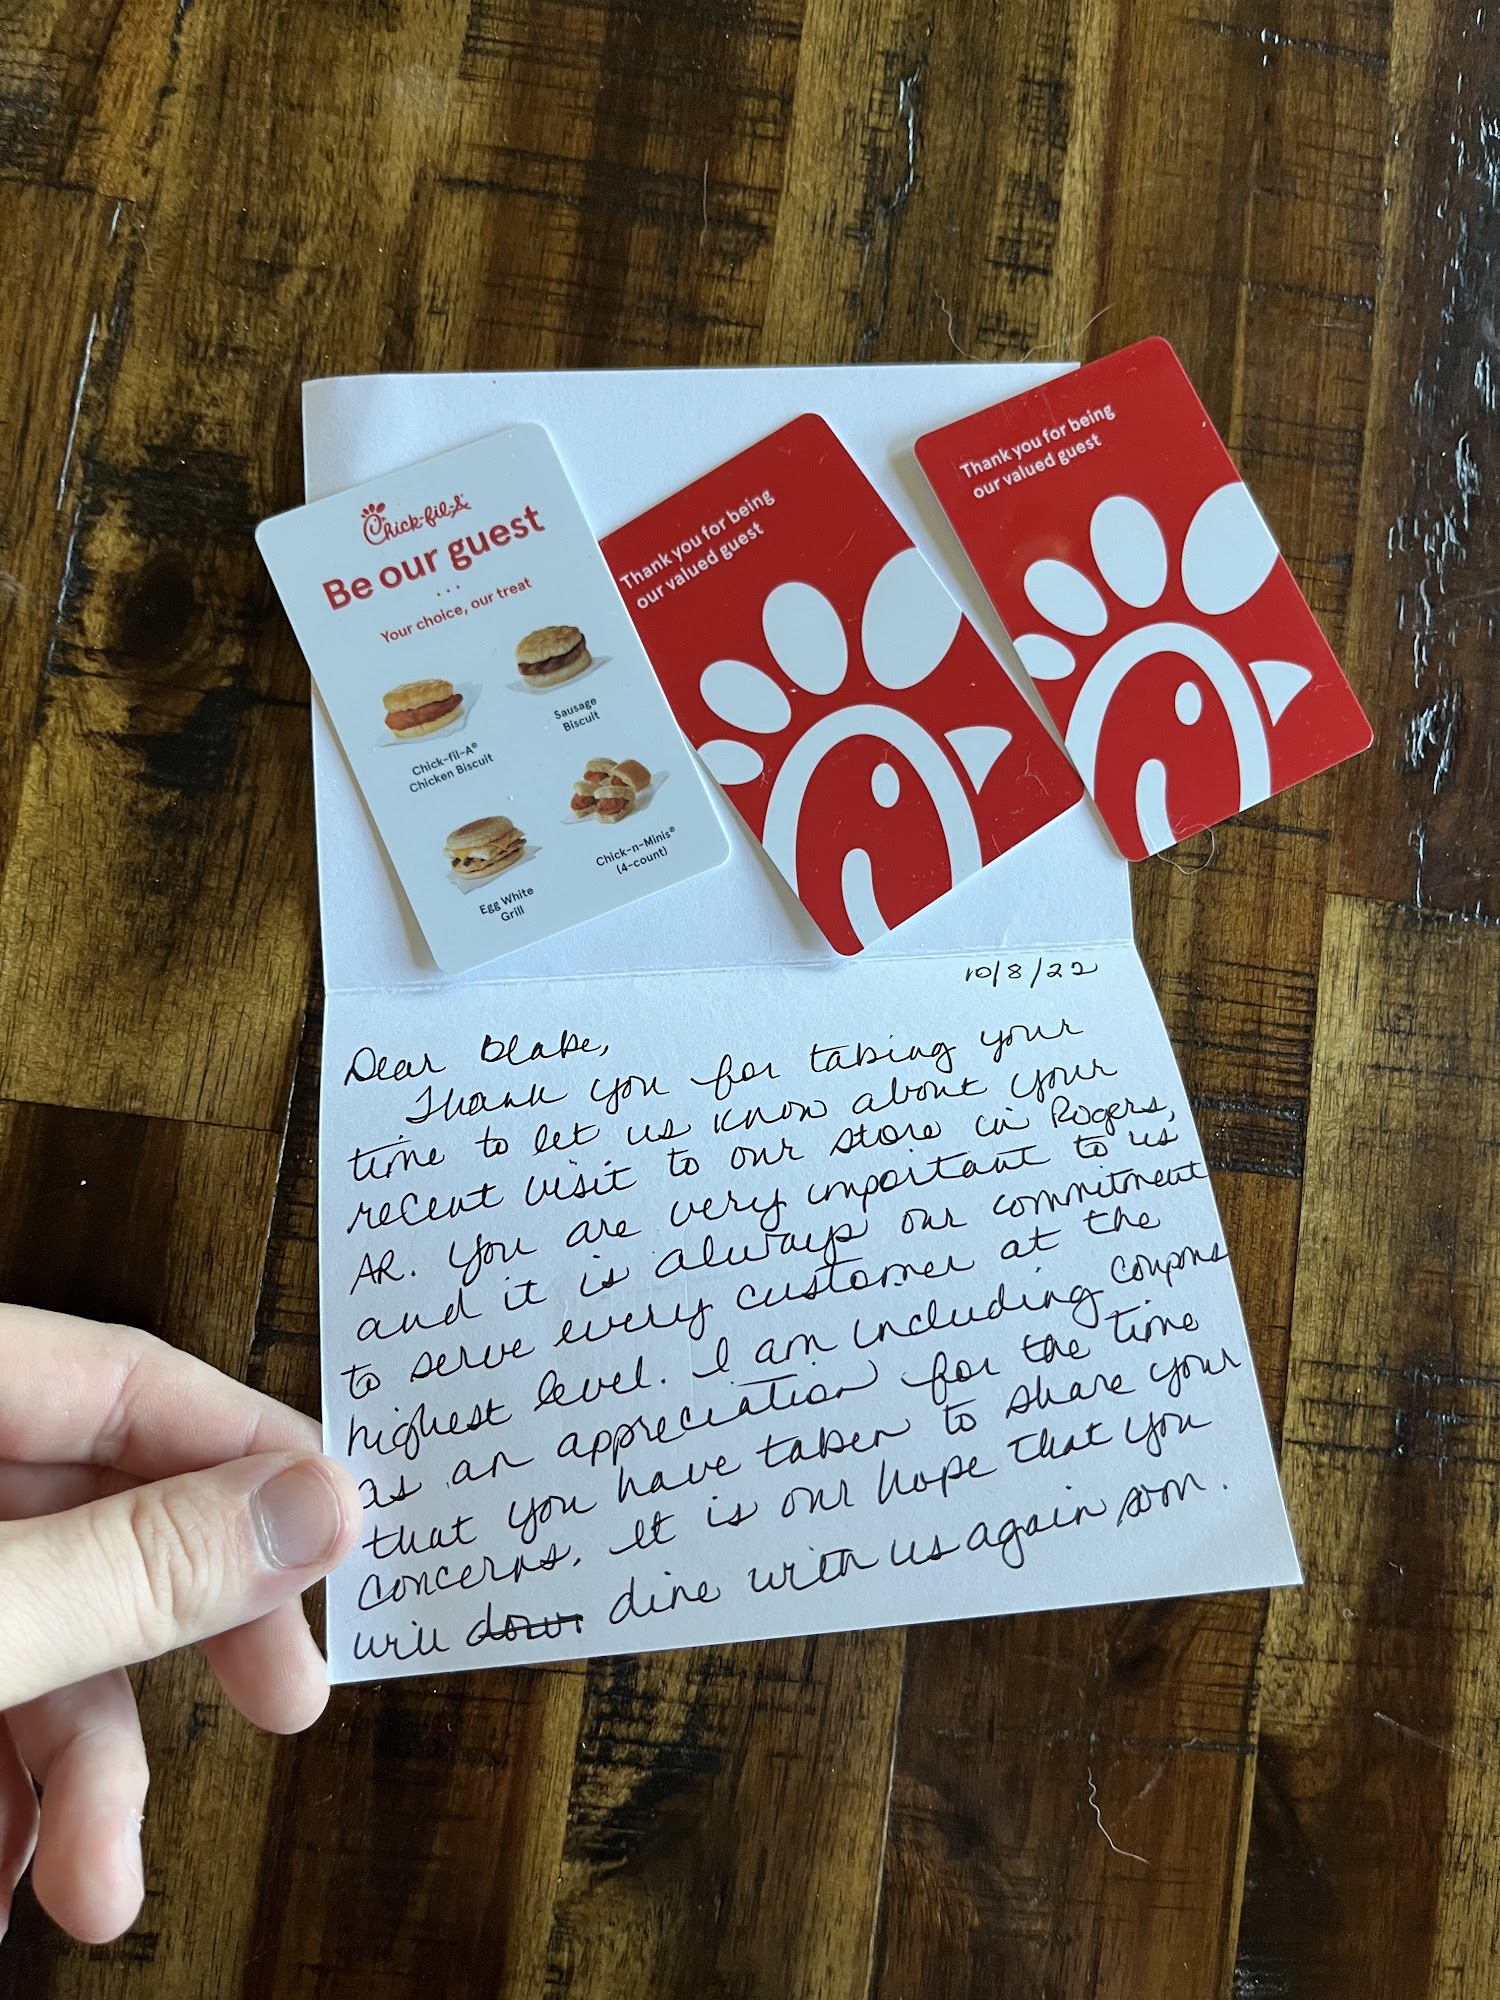 Chick-fil-A
Be our guest
...
Your choice, our treat
Sausage
Biscuit
Chick-fil-A®
Chicken Biscuit
Chick-n-Minis®
(4-count)
Egg White
Grill
Thank you for being
our valued guest
Thank you for being
our valued guest
10/8/22
Dear Blake,
Thank you for taking your
time to let us know about your
recent visit to our store in Rogers,
AR. You are very important to us
and it is always our commitment
to serve every customer at the
highest level. I am including coupons
as an appreciation for the time
that you have taken to share your
concerns. It is our hope that you
will dine with us again soon.